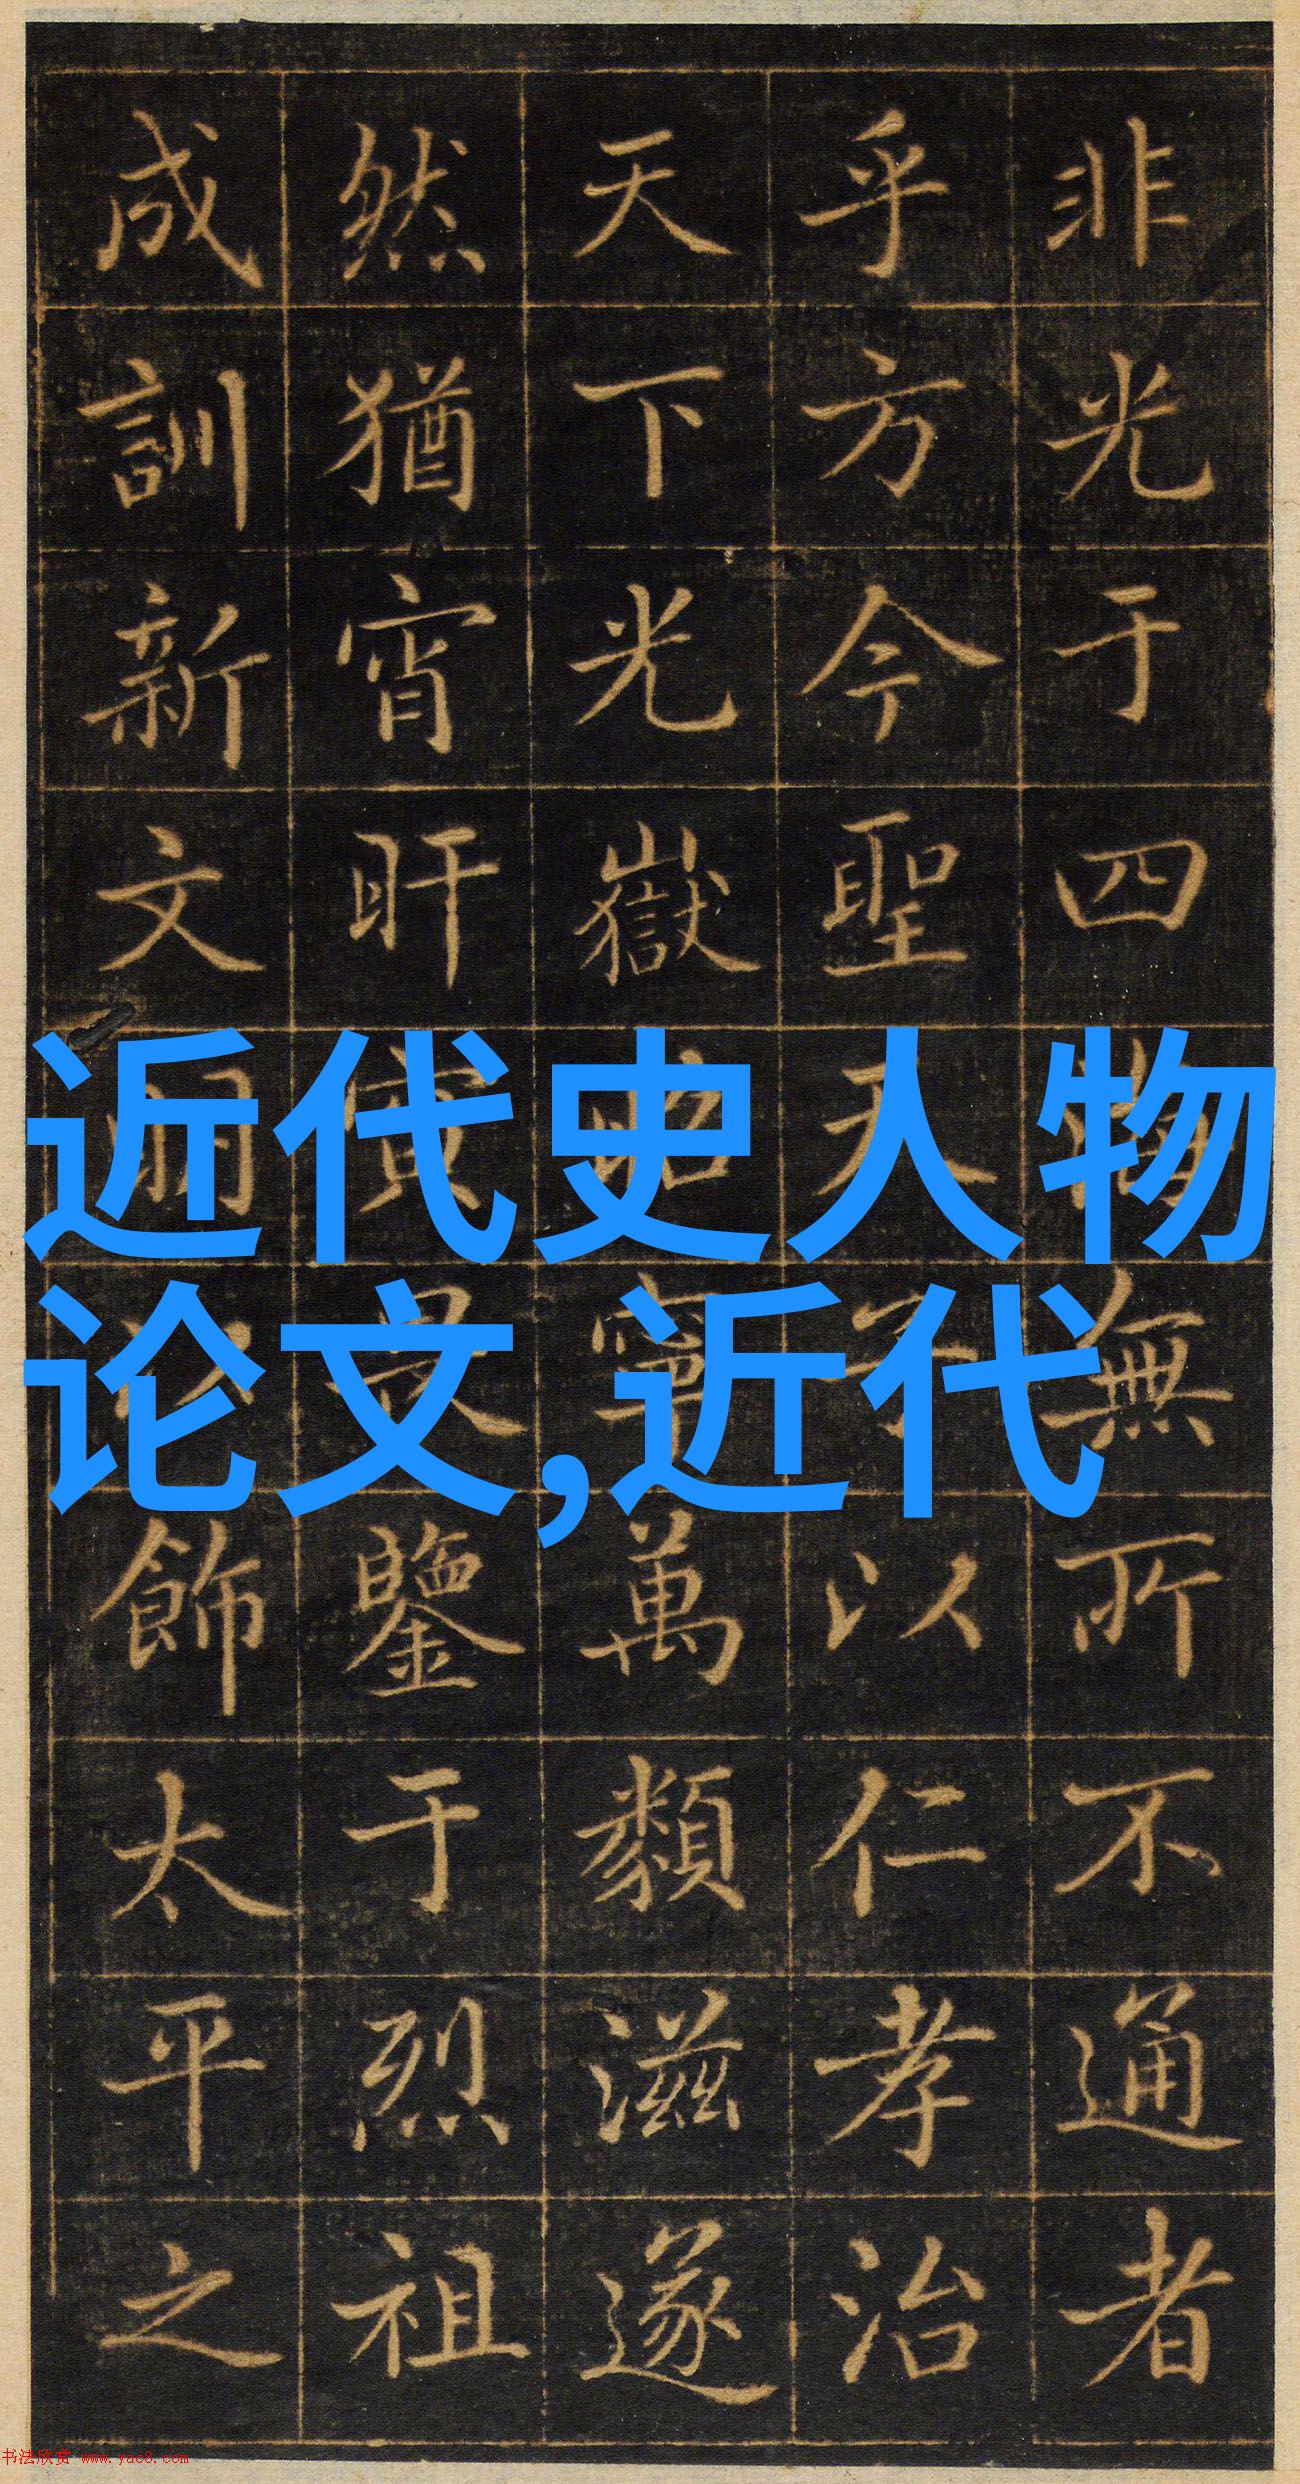 非光于四海無所不通者
乎方今聖天子以仁孝治
天下光嶽昭寧萬類滋遂
然猶宵旰寅畏鑒于烈祖
成訓新文明以飾太平之
近代史人物
论文,近代
书法欣赏 www.yac8.com